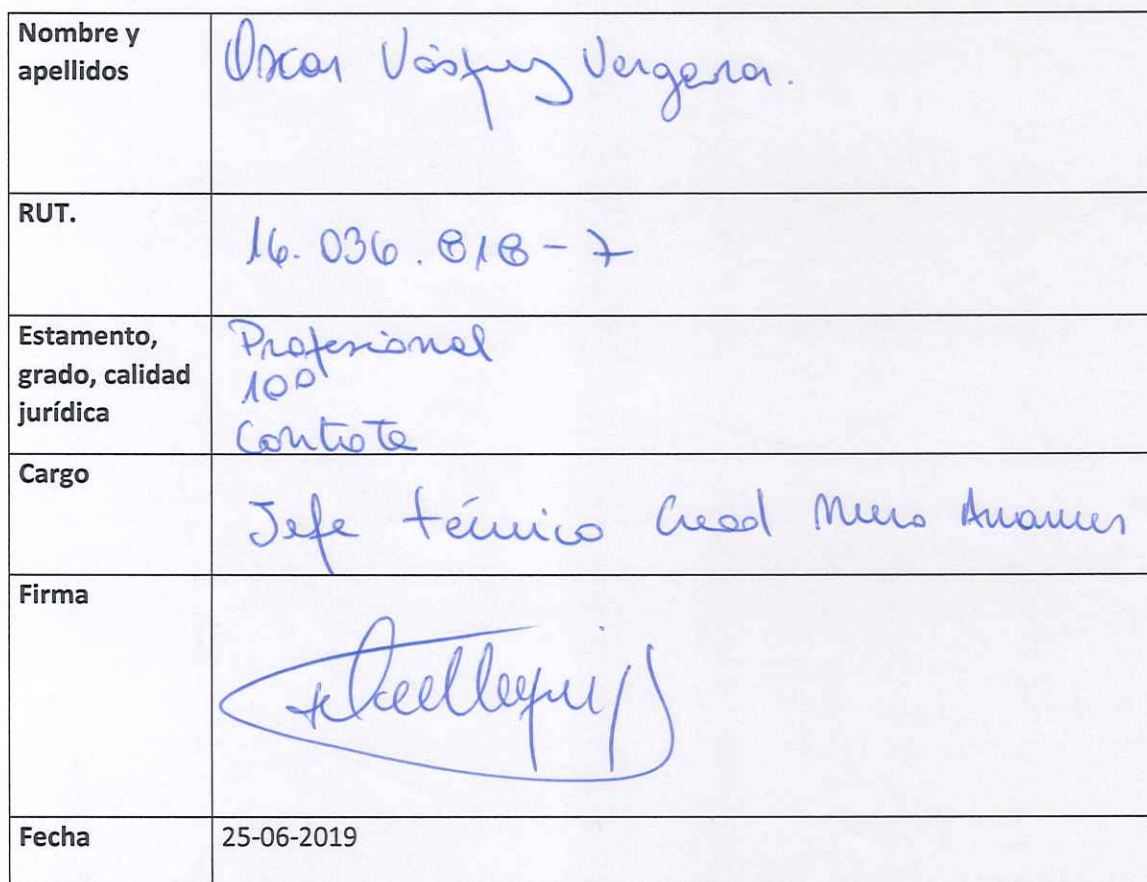 Nombre y
apellidos
Oscar Vásquez Vergara.
RUT.
16.036.818-7
Estamento,
grado, calidad
jurídica
Profesional
10º
Contrata
Cargo
Jefe técnico Cread
Firma
Fecha
25-06-2019